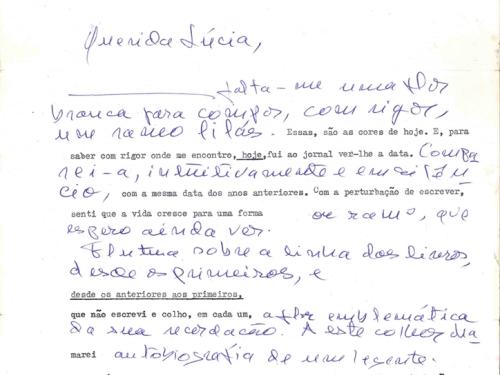 Querida Lúcia,
falta-me uma flor
branca para compor, com rigor,
um ramo lilás. Essas, são as cores de hoje. E, para
saber com rigor onde me encontro, hoje, fui ao jornal ver-lhe a data. Compa
rei-a, intuitivamente e em silên
cio, com a mesma data dos anos anteriores. Com a perturbação de escrever,
senti que a vida cresce para uma forma de ramo, que
espero ainda ver.
sobre a linha dos livros,
desde os primeiros, e
desde os anteriores aos primeiros,
que não escrevi e colho, em cada um, a flor emblemática
da sua recordação. A este colher cha
marei autobiografia de um legente.